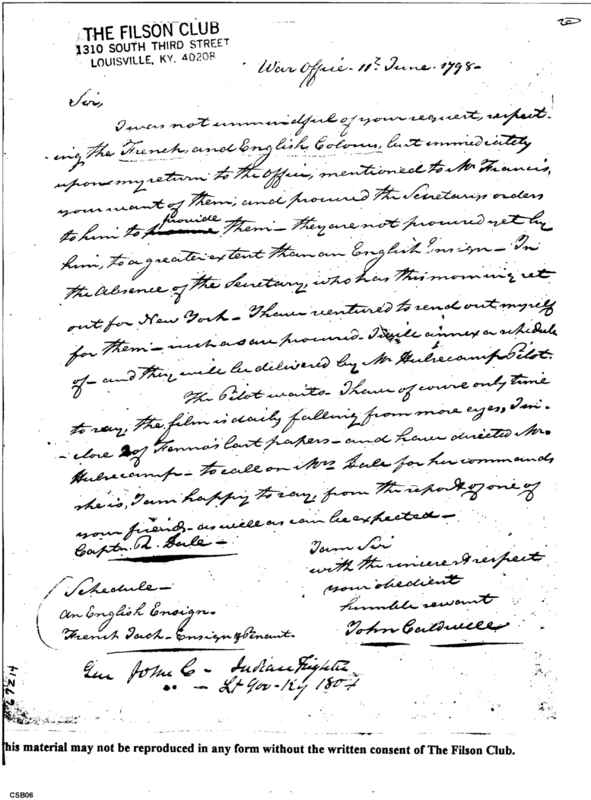 THE FILSON CLUB
1310 SOUTH THIRD STREET
LOUISVILLE, KY. 40208
War Office - 11th June - 1798 -
Sir,
I was not unmindful of your request, respect-
ing the French and English Colours, but immediately
upon my return to the office, mentioned to Mr Francis,
your want of them, and procured the Secretarys orders
to him to provide them - they are not procured yet by
him, to a greater extent than an English Ensign - In
the Absence of the Secretary, who has this morning set
out for New York - I have ventured to send out myself
for them - such as are procured - I will annex a schedule
of - and they will be delivered by Mr Hulsecamp Pilot.
The Pilot waits - I have of course only time
to say, the film is daily falling from more eyes, I in-
close 2 of Fennos last papers - and have directed Mr.
Hulsecamp - to call on Mrs Dale for her commands
she is, I am happy to say, from the report of one of
your friends - as well as can be expected -
Captn. R. Dale -
I am Sir
with the sincerest respect
your obedient
humble servant
John Caldwell
Schedule -
An English Ensign -
French Jack - Ensign & Penant.
Gen John C - Indian Fighter
" - Lt Gov - Ky 1804
his material may not be reproduced in any form without the written consent of The Filson Club.
CSB06